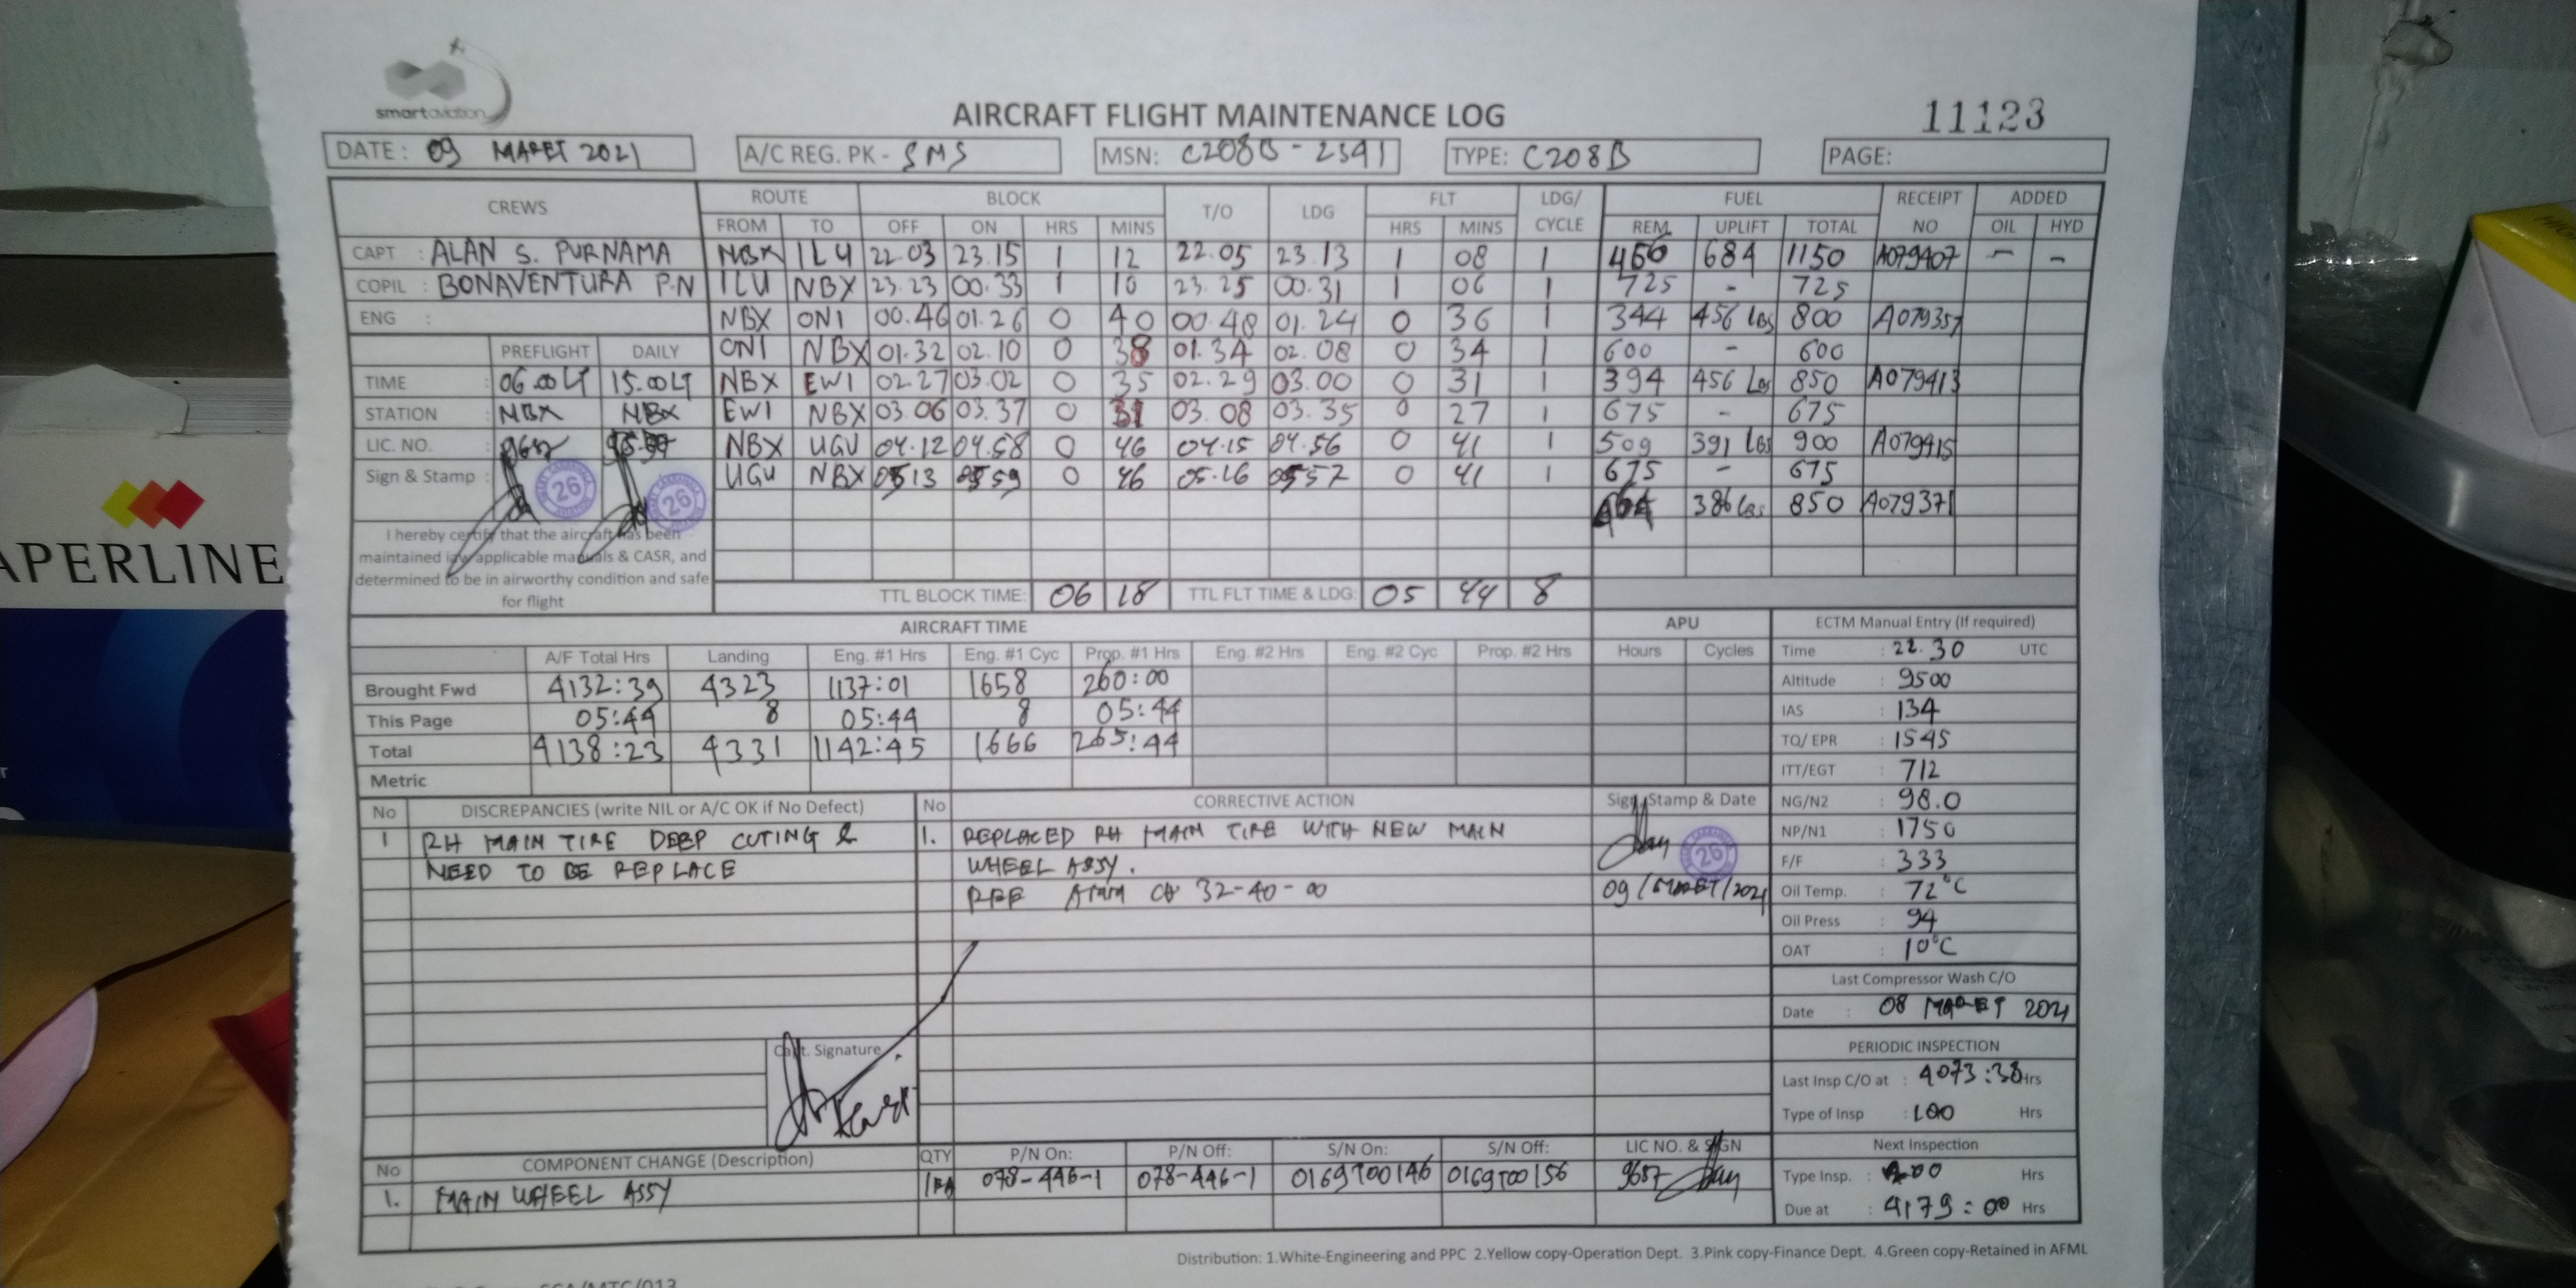 smartaviation
AIRCRAFT FLIGHT MAINTENANCE LOG
11123
DATE: 09 MARET 2021 A/C REG. PK - SMS MSN: C208B - 2391 TYPE: C208B PAGE:
CREWS ROUTE BLOCK T/O LDG FLT LDG/ CYCLE FUEL RECEIPT NO ADDED
FROM TO OFF ON HRS MINS HRS MINS REM UPLIFT TOTAL OIL HYD
CAPT : ALAN S. PURNAMA NBX ILU 22.03 23.15 1 12 22.05 23.13 1 08 1 466 684 1150 A079407 - -
COPIL : BONAVENTURA P.N ILU NBX 23.23 00.33 1 10 23.25 00.31 1 06 1 725 - 725
ENG : NBX ONI 00.46 01.26 0 40 00.48 01.24 0 36 1 344 456 Lbs 800 A079357
PREFLIGHT DAILY ONI NBX 01.32 02.10 0 38 01.34 02.08 0 34 1 600 - 600
TIME : 06.00LT 15.00LT NBX EWI 02.27 03.02 0 35 02.29 03.00 0 31 1 394 456 Lbs 850 A079413
STATION : NBX NBX EWI NBX 03.06 03.37 0 31 03.08 03.35 0 27 1 675 - 675
LIC. NO. : NBX UGU 04.12 04.58 0 46 04.15 04.56 0 41 1 509 391 Lbs 900 A079415
Sign & Stamp : 26 26 UGU NBX 05 13 05 59 0 46 05.16 05 57 0 41 1 675 - 675
386 Lbs 850 A079371
I hereby certify that the aircraft has been
maintained iaw applicable manuals & CASR, and
determined to be in airworthy condition and safe
for flight
TTL BLOCK TIME: 06 18 TTL FLT TIME & LDG: 05 44 8
AIRCRAFT TIME APU ECTM Manual Entry (If required)
A/F Total Hrs Landing Eng. #1 Hrs Eng. #1 Cyc Prop. #1 Hrs Eng. #2 Hrs Eng. #2 Cyc Prop. #2 Hrs Hours Cycles Time : 22.30 UTC
Brought Fwd 4132:39 4323 1137:01 1658 260:00 Altitude : 9500
This Page 05:44 8 05:44 8 05:44 IAS : 134
Total 4138:23 4331 1142:45 1666 265:44 TQ/ EPR : 1545
Metric ITT/EGT : 712
No DISCREPANCIES (write NIL or A/C OK if No Defect) No CORRECTIVE ACTION Sign, Stamp & Date NG/N2 : 98.0
1 RH MAIN TIRE DEEP CUTING & 1. REPLACED RH MAIN TIRE WITH NEW MAIN 26 NP/N1 : 1750
NEED TO BE REPLACE WHEEL ASSY. F/F : 333
REF AMM CH 32-40-00 09/MARET/2021 Oil Temp. : 72°C
Oil Press : 94
OAT : 10°C
Last Compressor Wash C/O
Date : 08 MARET 2021
Capt. Signature
PERIODIC INSPECTION
Last Insp C/O at : 4073:38 Hrs
Type of Insp : 100 Hrs
No COMPONENT CHANGE (Description) QTY P/N On: P/N Off: S/N On: S/N Off: LIC NO. & SIGN Next Inspection
1. MAIN WHEEL ASSY 1EA 078-446-1 078-446-1 0169T00146 0169T00156 9657 Type Insp. : Hrs
Due at : 4179:00 Hrs
Distribution: 1.White-Engineering and PPC 2.Yellow copy-Operation Dept. 3.Pink copy-Finance Dept. 4.Green copy-Retained in AFML
APERLINE